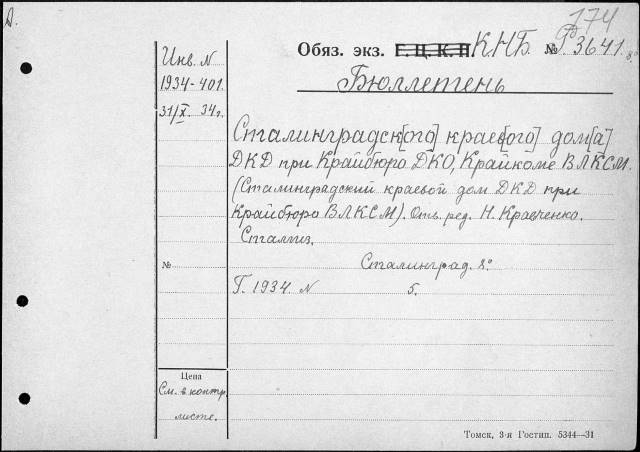 А.
174
Инв. N
1934-401.
31/X. 34г.
Обяз. экз. Г. Ц. К. П. К.Н.Б. № Ф 3641. 8°
Бюллетень
Сталинградск[ого] краев[ого] дом[а]
ДКД при Крайбюро ДКО, Крайкоме ВЛКСМ.
(Сталинградский краевой дом ДКД при
Крайбюро ВЛКСМ). Отв. ред. Н. Кравченко.
Сталгиз.
№
Сталинград. 8°
Г. 1934 N 5.
Цена
См. в контр.
листе.
Томск, 3-я Гостип. 5344—31